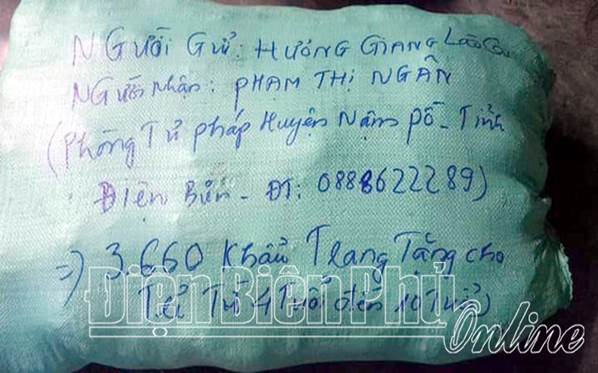 NGười Gửi: HƯƠNG GIANG Lào Cai
NGười Nhận: PHẠM THỊ NGÂN
(Phòng Tư pháp Huyện Nậm Pồ - Tỉnh
Điện Biên - ĐT: 0888622289)
=) 3.660 Khẩu Trang Tặng cho
Trẻ Từ 4 Tuổi đến 10 Tuổi)
ĐiệnBiênPhủ
Online